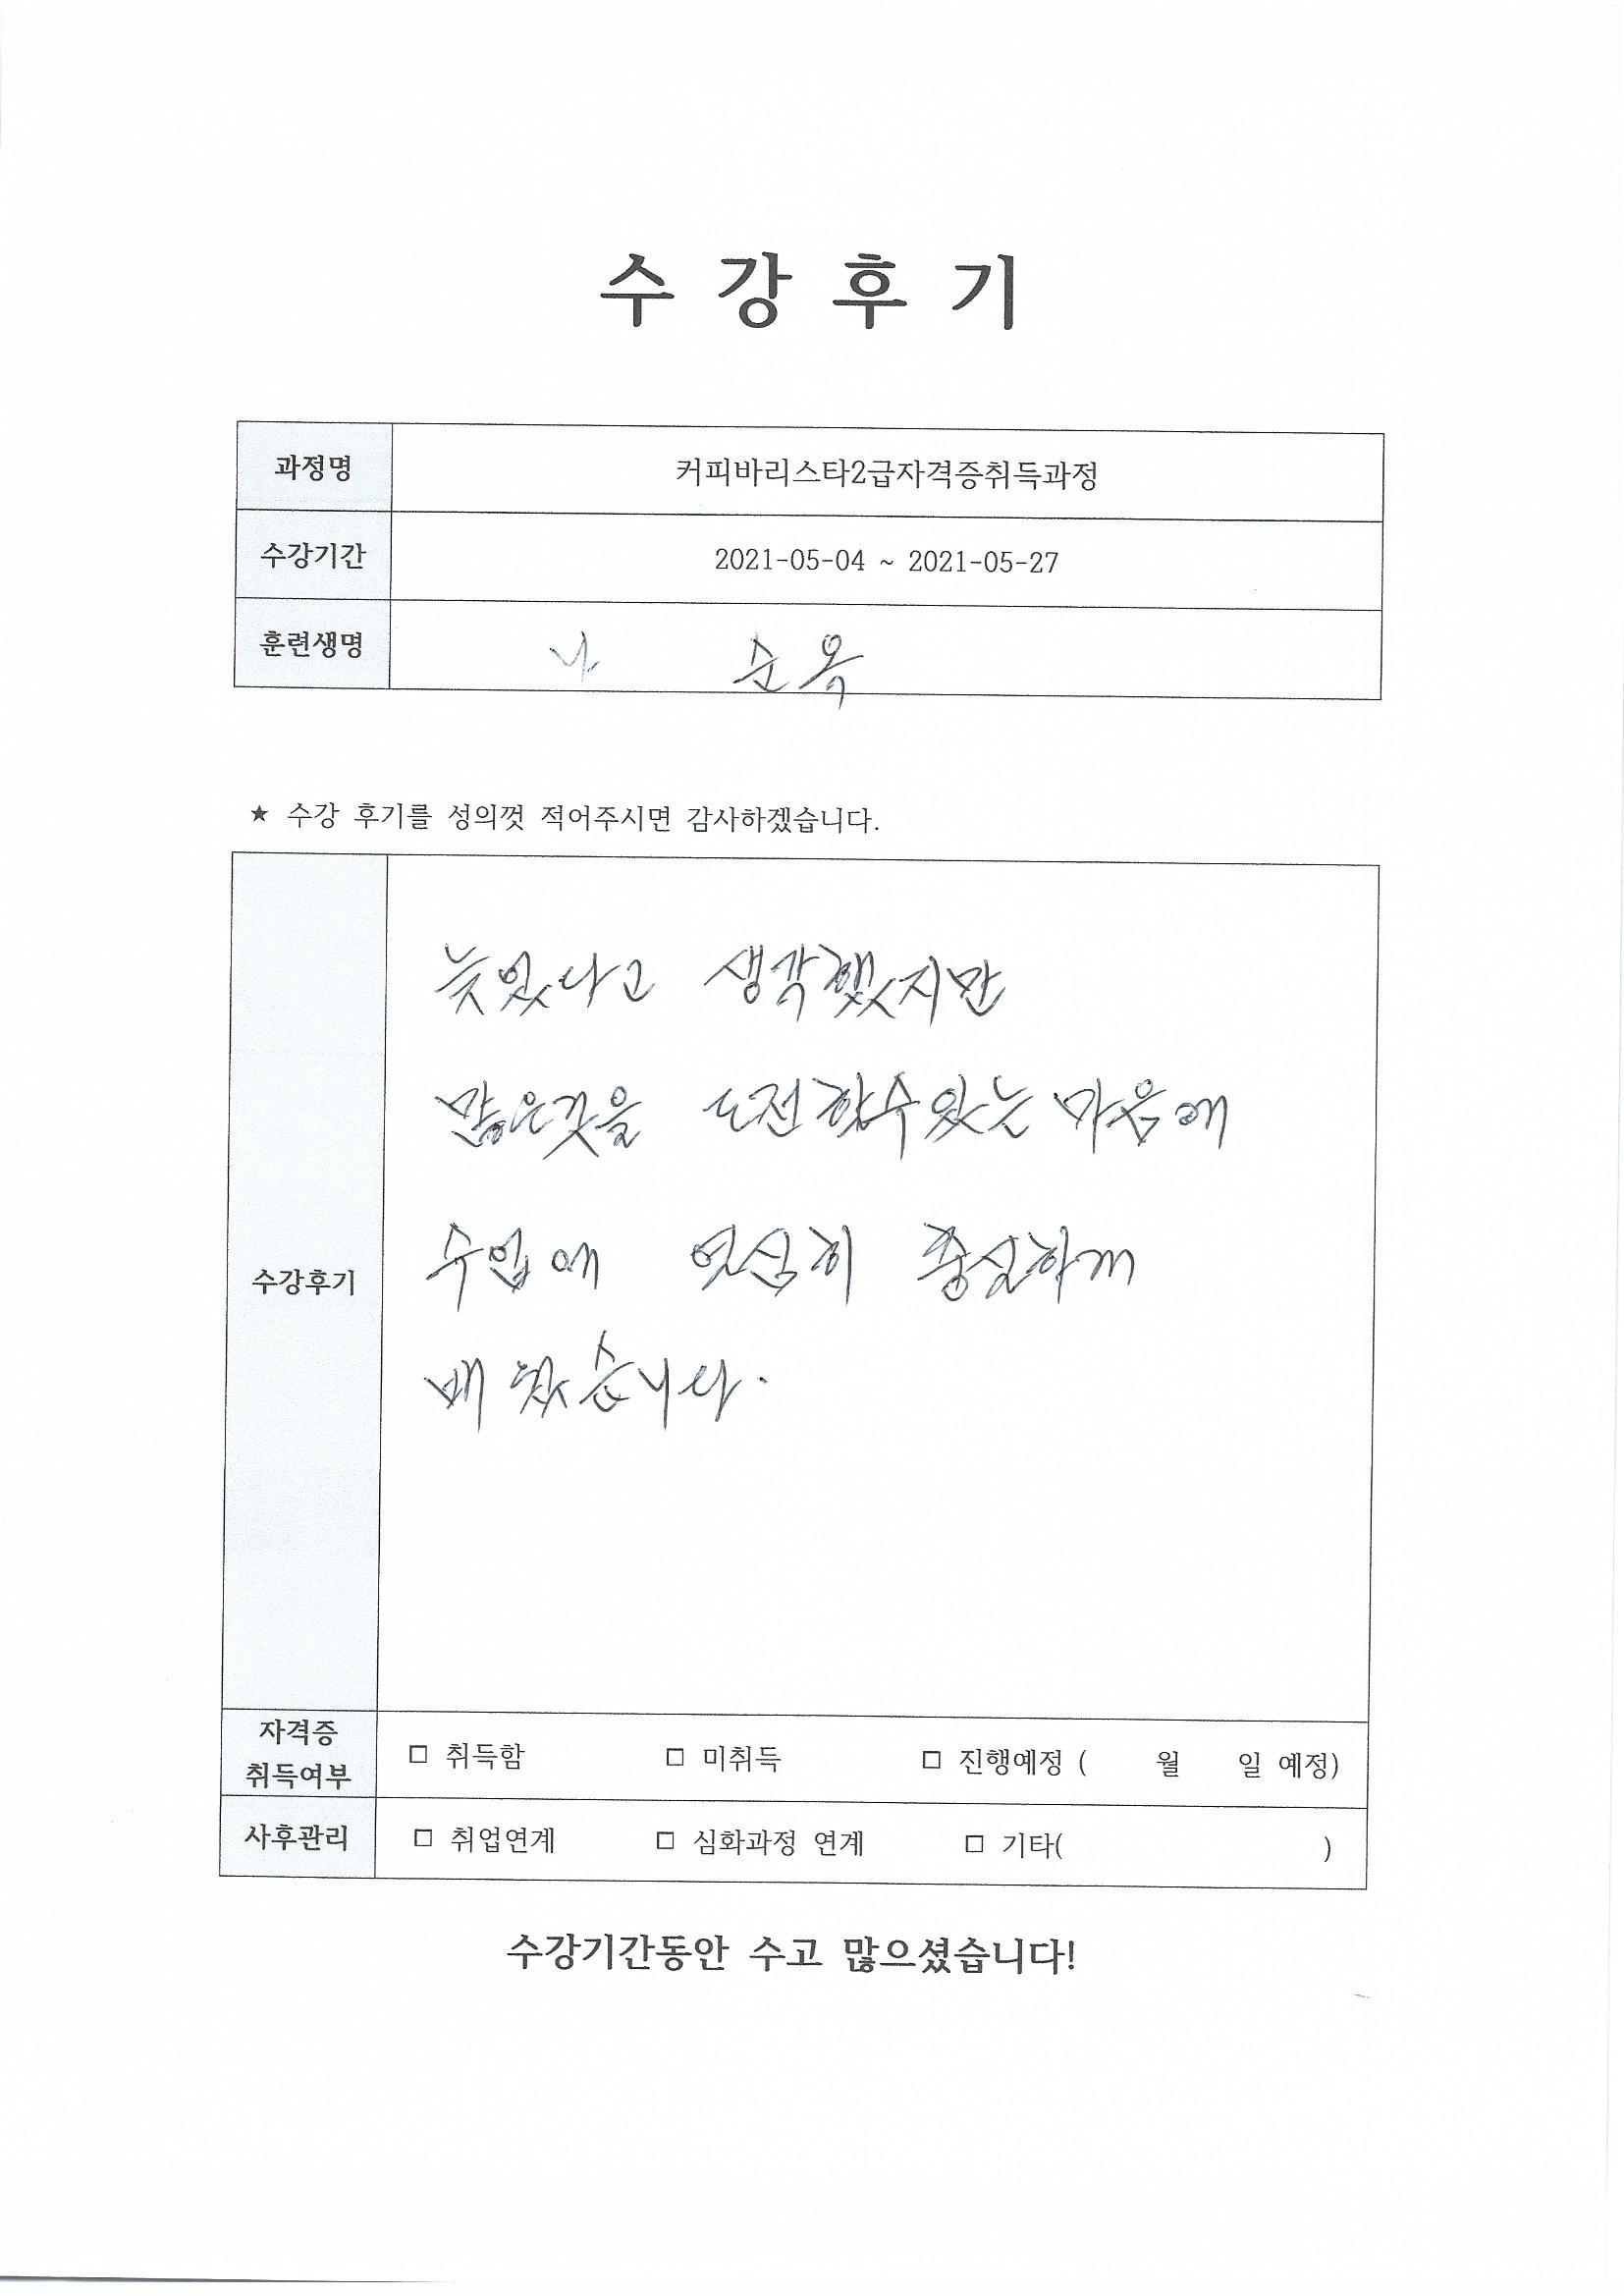 수 강 후 기
과정명 커피바리스타2급자격증취득과정
수강기간 2021-05-04 ~ 2021-05-27
훈련생명 나 순옥
★ 수강 후기를 성의껏 적어주시면 감사하겠습니다.
수강후기
늦었다고 생각했지만
많은것을 도전할수있는 마음에
수업에 열심히 충실하게
배웠습니다.
자격증 취득여부 □ 취득함 □ 미취득 □ 진행예정 ( 월 일 예정)
사후관리 □ 취업연계 □ 심화과정 연계 □ 기타( )
수강기간동안 수고 많으셨습니다!